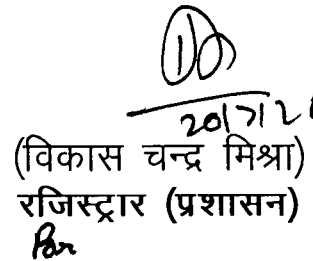 20/7/2
(विकास चन्द्र मिश्रा)
रजिस्ट्रार (प्रशासन)